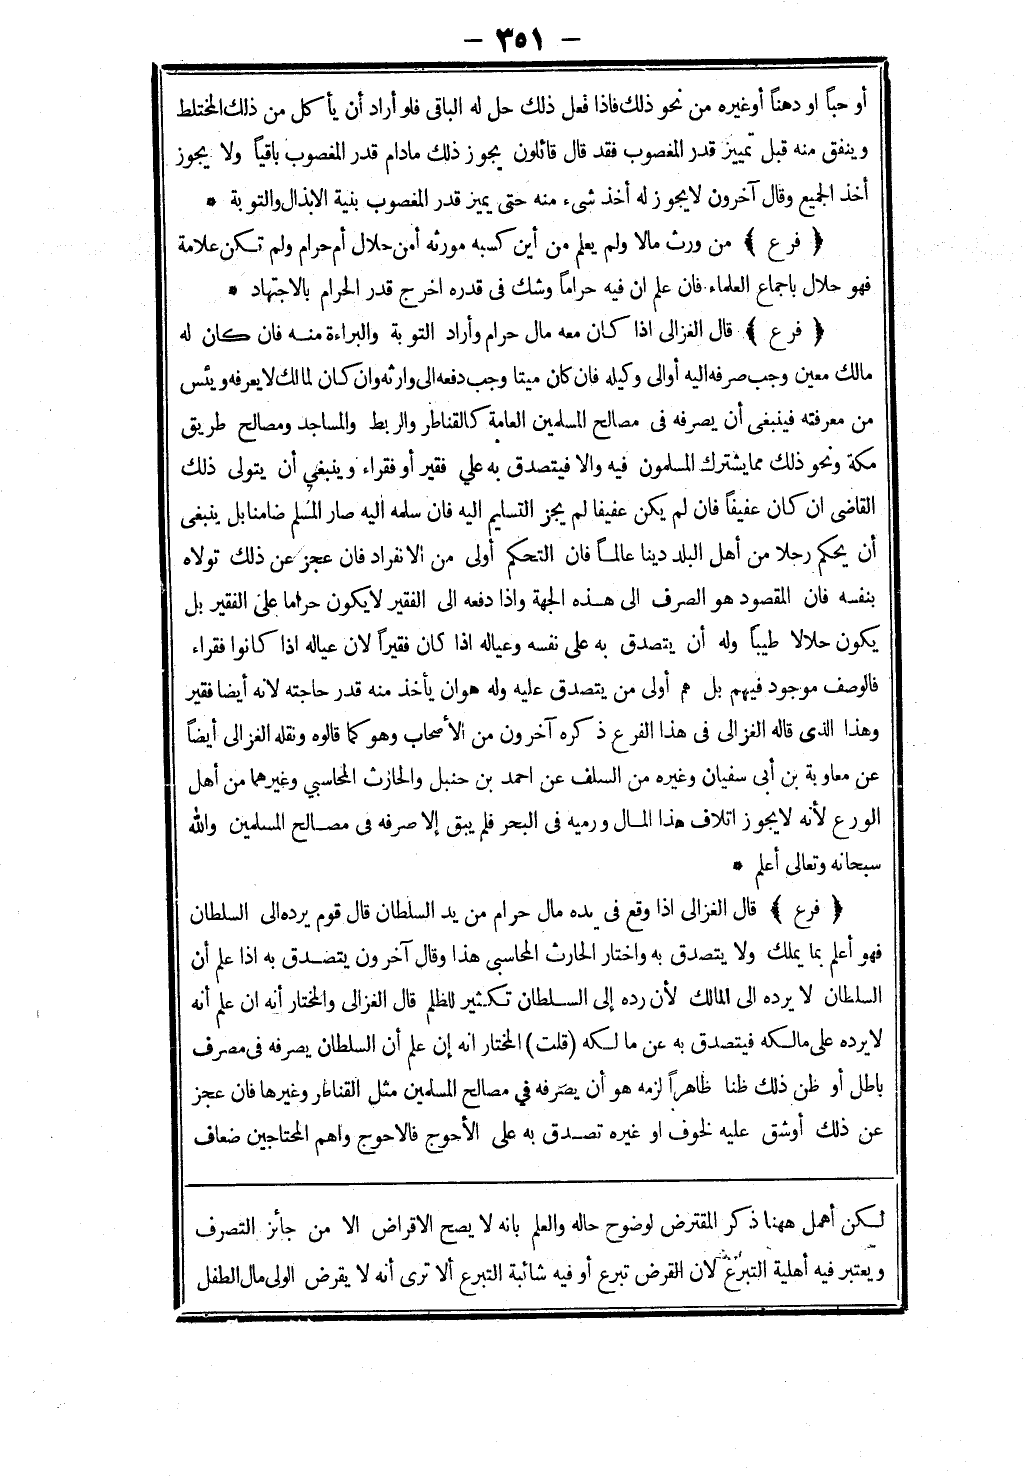 — ٣٥١ —
أو حباً او دهناً أو غيره من نحو ذلك فاذا فعل ذلك حل له الباقى فلو أراد أن يأكل من ذلك المختلط
وينفق منه قبل تمييز قدر المغصوب فقد قال قائلون يجوز ذلك مادام قدر المغصوب باقياً ولا يجوز
أخذ الجميع وقال آخرون لايجوز له أخذ شىء منه حتى يميز قدر المغصوب بنية الابذال والتوبة *
﴿ فرع ﴾ من ورث مالا ولم يعلم من أين كسبه مورثه أمن حلال أم حرام ولم تكن علامة
فهو حلال باجماع العلماء فان علم ان فيه حراماً وشك فى قدره اخرج قدر الحرام بالاجتهاد *
﴿ فرع ﴾ قال الغزالى اذا كان معه مال حرام وأراد التوبة والبراءة منه فان كان له
مالك معين وجب صرفه اليه أو الى وكيله فان كان ميتا وجب دفعه الى وارثه وان كان لمالك لا يعرفه ويئس
من معرفته فينبغى أن يصرفه فى مصالح المسلمين العامة كالقناطر والربط والمساجد ومصالح طريق
مكة ونحو ذلك مما يشترك المسلمون فيه والا فيتصدق به علي فقير أو فقراء وينبغي أن يتولى ذلك
القاضى ان كان عفيفاً فان لم يكن عفيفا لم يجز التسليم اليه فان سلمه اليه صار المُسلم ضامنا بل ينبغى
أن يحكم رجلا من أهل البلد دينا عالماً فان التحكم أولى من الانفراد فان عجز عن ذلك تولاه
بنفسه فان المقصود هو الصرف الى هذه الجهة واذا دفعه الى الفقير لايكون حراما على الفقير بل
يكون حلالا طيباً وله أن يتصدق به على نفسه وعياله اذا كان فقيراً لان عياله اذا كانوا فقراء
فالوصف موجود فيهم بل هم أولى من يتصدق عليه وله هو ان يأخذ منه قدر حاجته لانه أيضا فقير
وهذا الذى قاله الغزالى فى هذا الفرع ذكره آخرون من الأصحاب وهو كما قالوه ونقله الغزالى أيضاً
عن معاوية بن أبى سفيان وغيره من السلف عن احمد بن حنبل والحارث المحاسبي وغيرهما من أهل
الورع لأنه لايجوز اتلاف هذا المال ورميه فى البحر فلم يبق إلا صرفه فى مصالح المسلمين والله
سبحانه وتعالى أعلم *
﴿ فرع ﴾ قال الغزالى اذا وقع فى يده مال حرام من يد السلطان قال قوم يرده الى السلطان
فهو أعلم بما يملك ولا يتصدق به واختار الحارث المحاسبى هذا وقال آخرون يتصدق به اذا علم أن
السلطان لا يرده الى المالك لأن رده إلى السلطان تكثير للظلم قال الغزالى والمختار أنه ان علم أنه
لا يرده على مالكه فيتصدق به عن مالكه (قلت) المختار انه إن علم أن السلطان يصرفه فى مصرف
باطل أو ظن ذلك ظنا ظاهراً لزمه هو أن يصرفه في مصالح المسلمين مثل القناطر وغيرها فان عجز
عن ذلك أو شق عليه لخوف او غيره تصدق به على الأحوج فالاحوج واهم المحتاجين ضعاف
لكن أهمل ههنا ذكر المقترض لوضوح حاله والعلم بانه لا يصح الاقراض الا من جائز التصرف
ويعتبر فيه أهلية التبرع لان القرض تبرع أو فيه شائبة التبرع ألا ترى أنه لا يقرض الولى مال الطفل